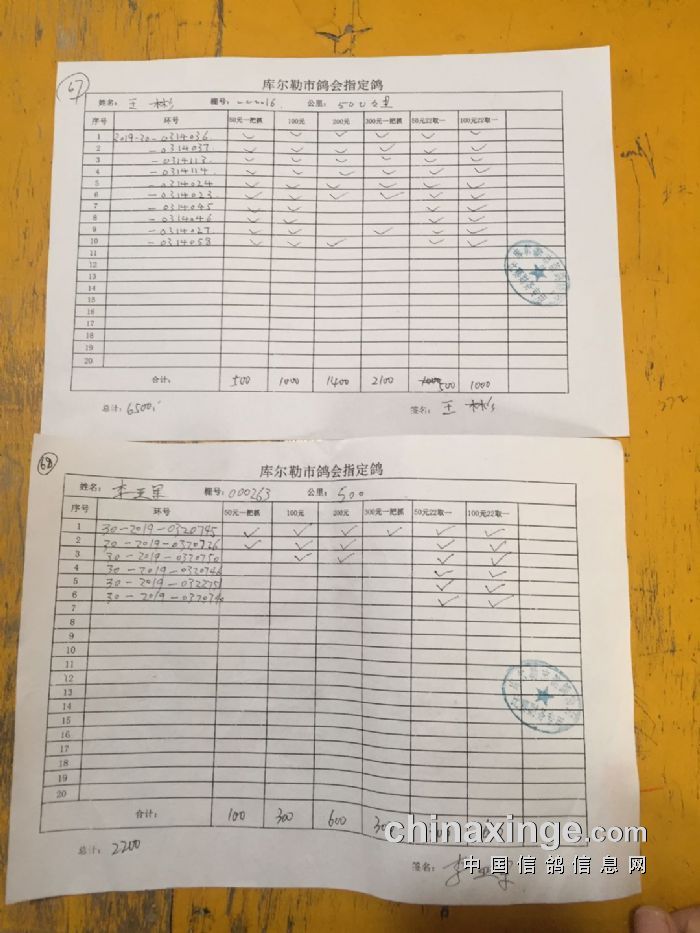 67
库尔勒市鸽会指定鸽
姓名: 王 彬 棚号: 000016 公里: 500公里
序号 环号 50元一把抓 100元 200元 300元一把抓 50元22取一 100元22取一
1 2019-30-0314036 ✓ ✓ ✓ ✓ ✓ ✓
2 -0314037 ✓ ✓ ✓ ✓ ✓ ✓
3 -0314113 ✓ ✓ ✓ ✓ ✓ ✓
4 -0314114 ✓ ✓ ✓ ✓ ✓ ✓
5 -0314024 ✓ ✓ ✓ ✓ ✓ ✓
6 -0314023 ✓ ✓ ✓ ✓ ✓ ✓
7 -0314045 ✓ ✓ ✓ ✓
8 -0314046 ✓ ✓ ✓ ✓
9 -0314027 ✓ ✓ ✓ ✓ ✓
10 -0314058 ✓ ✓ ✓ ✓ ✓
11
12
13
14
15
16
17
18
19
20
合计: 500 1000 1400 2100 500 1000
总计: 6500 签名: 王 彬
68
库尔勒市鸽会指定鸽
姓名: 李 棚号: 000263 公里: 500
序号 环号 50元一把抓 100元 200元 300元一把抓 50元22取一 100元22取一
1 30-2019-0320745 ✓ ✓ ✓ ✓ ✓ ✓
2 30-2019-0320726 ✓ ✓ ✓ ✓ ✓
3 30-2019-0320750 ✓ ✓ ✓ ✓
4 30-2019-0320746 ✓ ✓
5 30-2019-032275 ✓ ✓
6 30-2019-032034 ✓ ✓
7
8
9
10
11
12
13
14
15
16
17
18
19
20
合计: 100 300 600
chinaxinge.com
总计: 2200 签名: 李
中国信鸽信息网